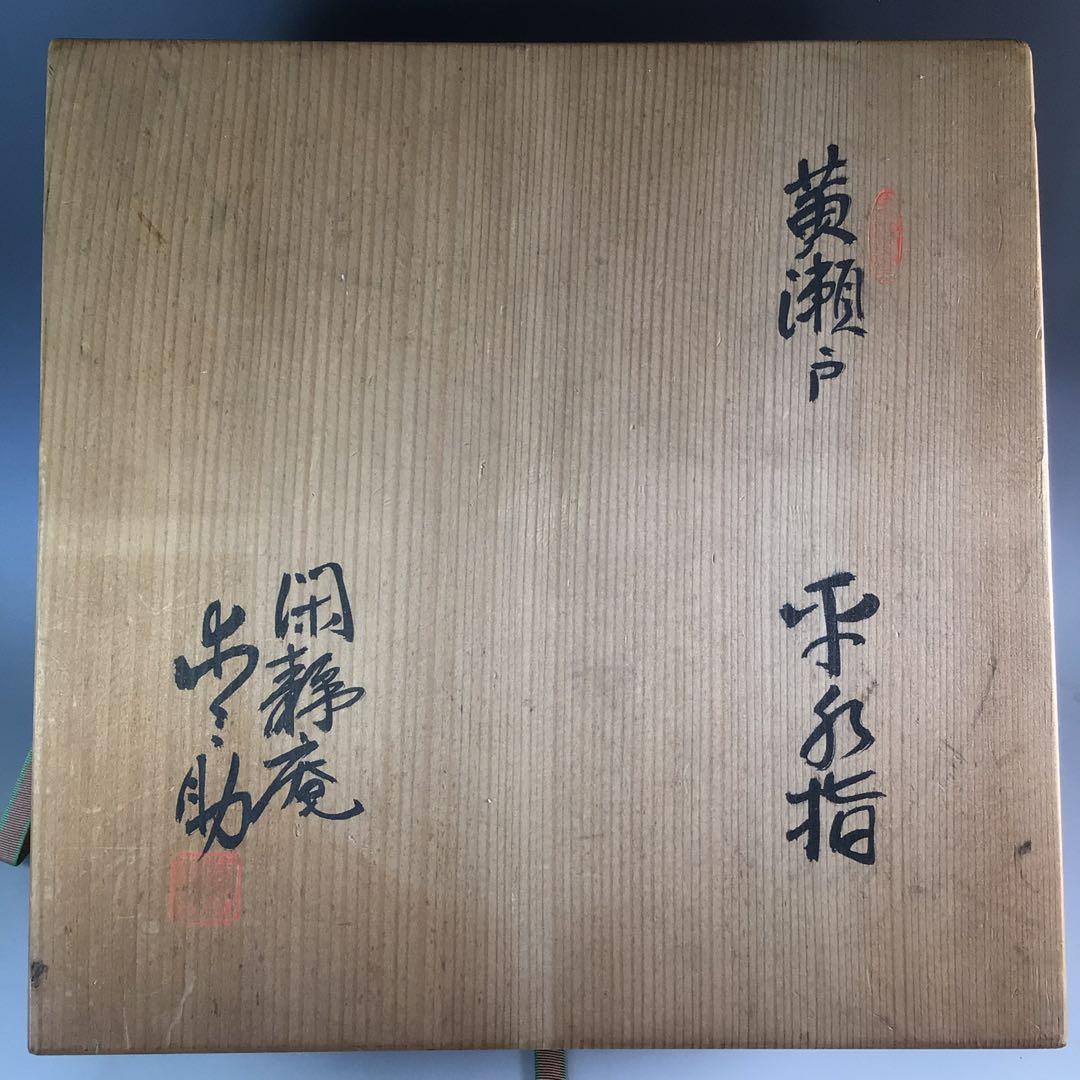 黄瀬戸
平水指
閑静庵
助